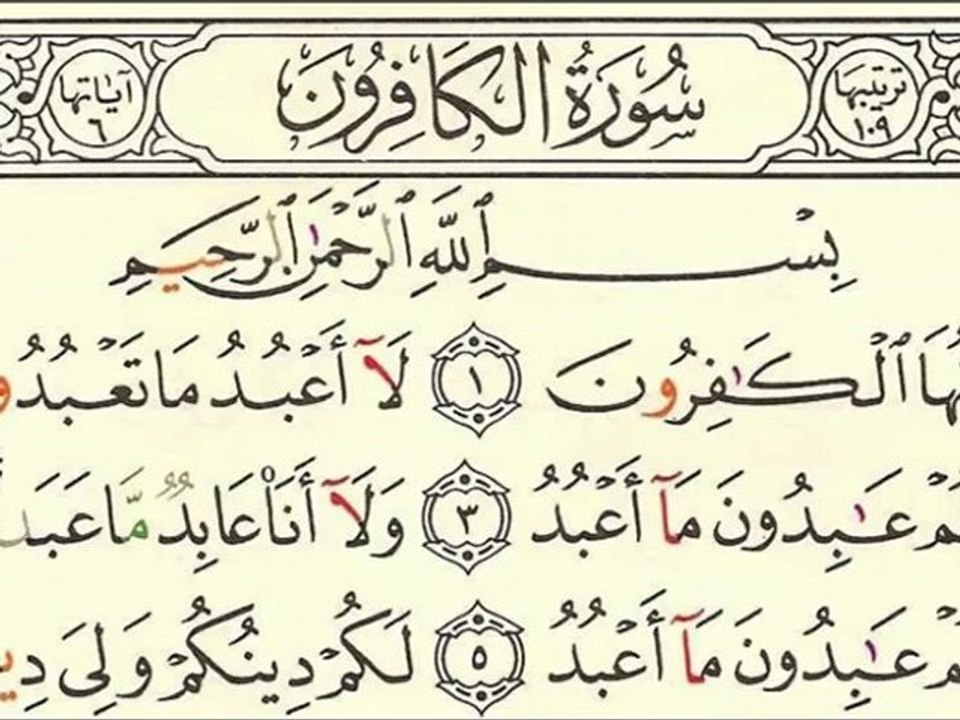 ترتيبها ١٠٩ سُورَةُ الكَافِرُونَ آياتها ٦
بِسْمِ ٱللَّهِ ٱلرَّحْمَٰنِ ٱلرَّحِيمِ
ٱلْكَٰفِرُونَ ١ لَآ أَعْبُدُ مَا تَعْبُدُو
عَٰبِدُونَ مَآ أَعْبُدُ ٣ وَلَآ أَنَا۠ عَابِدٌ مَّا عَبَد
عَٰبِدُونَ مَآ أَعْبُدُ ٥ لَكُمْ دِينُكُمْ وَلِىَ دِي